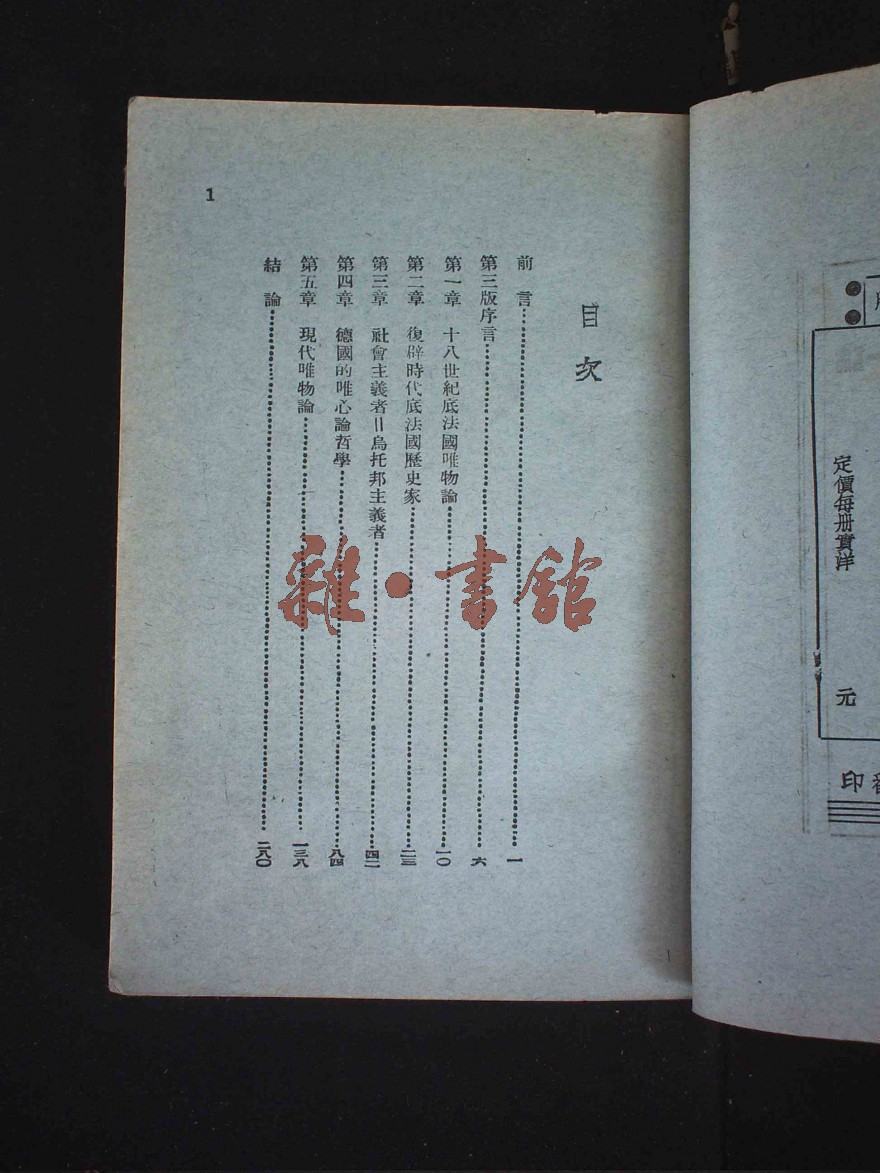 1
目次
前言……一
第三版序言……六
第一章 十八世紀底法國唯物論……一〇
第二章 復辟時代底法國歷史家……二三
第三章 社會主義者＝烏托邦主義者……四二
第四章 德國的唯心論哲學……八四
第五章 現代唯物論……一三八
結論……二八〇
雜·書館
定價每册實洋 元
印